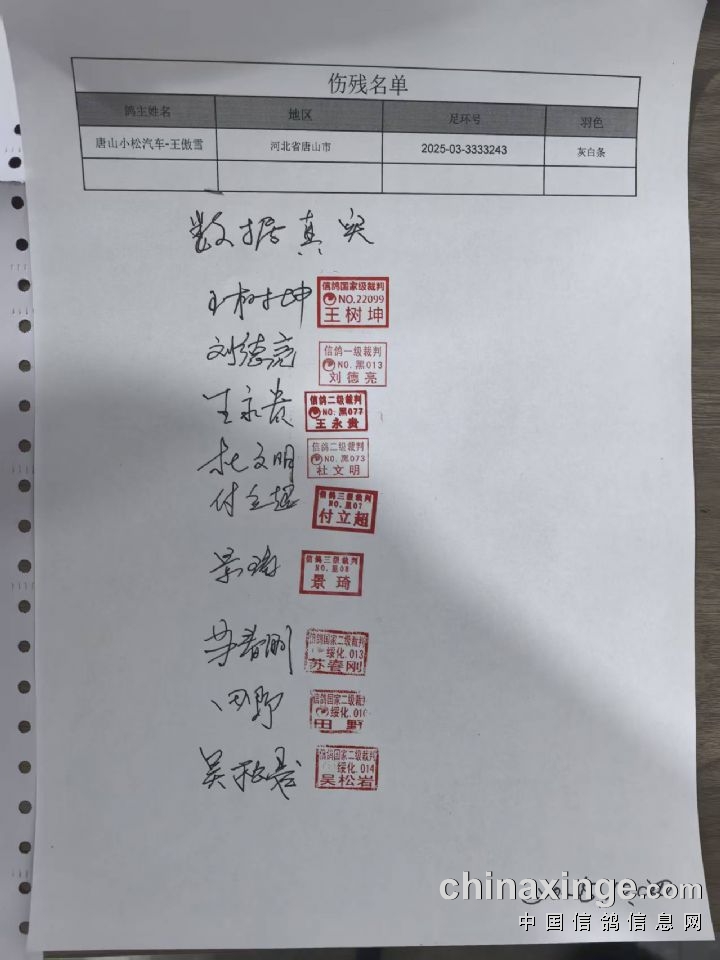 伤残名单
鸽主姓名 地区 足环号 羽色
唐山小松汽车-王傲雪 河北省唐山市 2025-03-3333243 灰白条
数据真实
王树坤
信鸽国家级裁判
NO.22099
王树坤
刘德亮
信鸽一级裁判
NO.黑013
刘德亮
王永贵
信鸽二级裁判
NO:黑077
王永贵
杜文明
信鸽二级裁判
NO.黑073
杜文明
付立超
信鸽三级裁判
NO.里07
付立超
景琦
信鸽三级裁判
NO.里08
景琦
苏春刚
信鸽国家二级裁判
绥化.013
苏春刚
田野
信鸽国家二级裁判
绥化.016
田野
吴松岩
信鸽国家二级裁判
绥化.014
吴松岩
chinaxinge.com
中国信鸽信息网